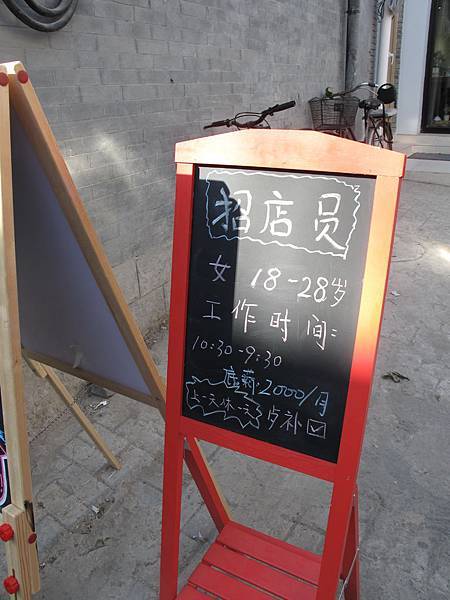 招店员
女 18-28岁
工作时间:
10:30-9:30
底薪:2000/月
上一天休一天 歺补